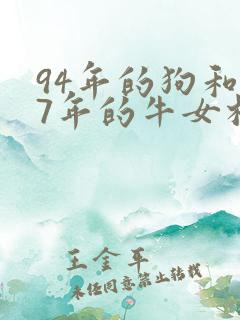 94年的狗和
7年的牛女
王金平
未经同意禁止转载